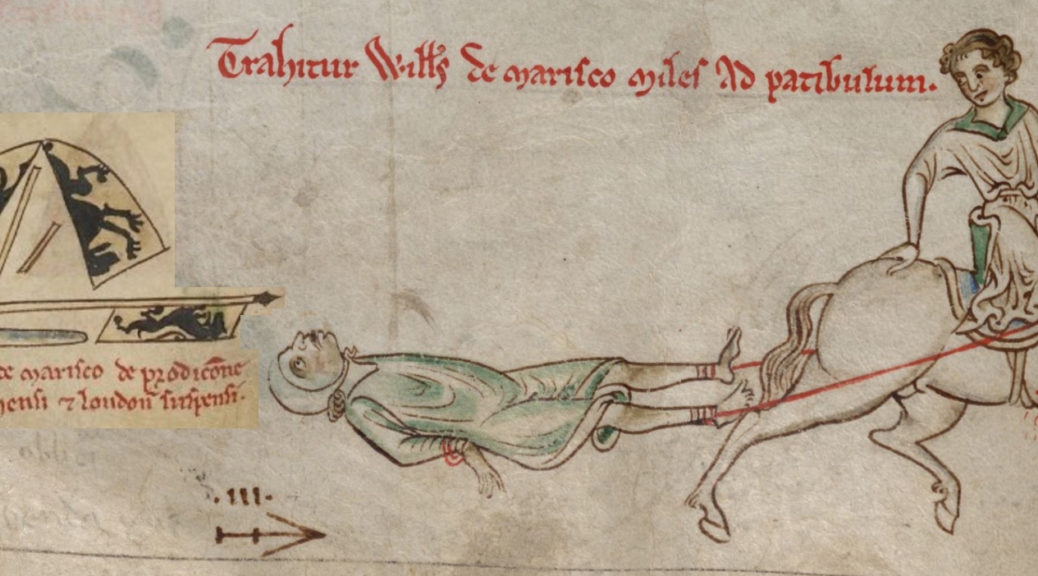 Trahitur Will's de marisco miles Ad patibulum.
de marisco de prodicōne
hensi ⁊ london suspensi.
.III.